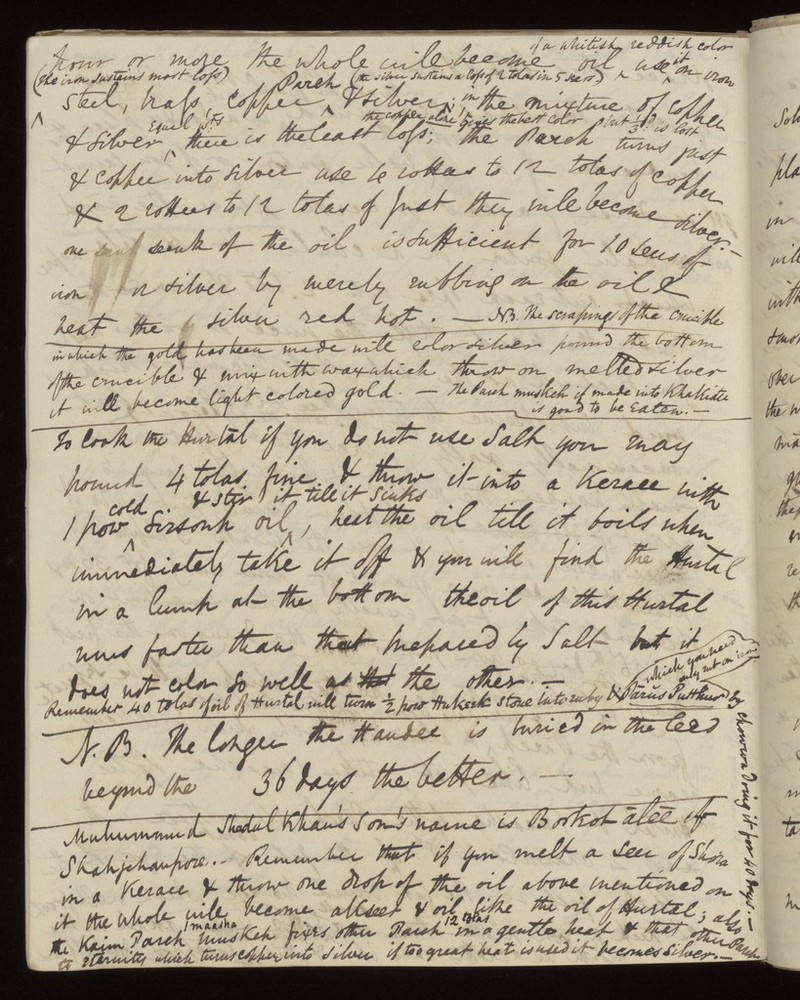 hour or more the whole will become of a whitish reddish color oil use it on iron
(the iron sustains most loss) Parch (the silver sustains a loss of 2 tolas in 5 seers)
steel, brass, copper, & silver; in the mixture of copper
& silver Equal pts there is the least loss; the copper alone gives the best color but 1/3 is lost the Parch turns just
& copper into silver use 4 rottees to 12 tolas of copper
& 2 rottees to 12 tolas of just they will become silver. —
one seenk of the oil is sufficient for 10 seers of
iron or silver by merely rubbing on the oil &
heat the silver red hot. — N.B. The scrapings of the crucible
in which the gold has been made will color silver pound the bottom
of the crucible & mix with wax which throw on melted silver
it will become light colored gold. — The Parch muskeh if made into Khakiste
is good to be Eaten. —
To Cook the Hurtal if you do not use Salt you may
pound 4 tolas fine & throw it into a Keraee with
1 pow cold Sirsonh oil & stir it till it sinks, heat the oil till it boils when
immediately take it off & you will find the Hurtal
in a lump at the bottom the oil of this Hurtal
runs faster than that prepared by Salt but it
does not color so well as the other. —
Remember 40 tolas of oil of Hurtal will turn 1/2 pow stone into ruby & Parus Putthur which you need only rub on iron by doing it for 40 days. —
N.B. The longer the Handee is buried in the
beyond the 36 days the better. —
Muhummud Khan's Son's name is Borkot alee of
Shahjehanpore. — Remember that if you melt a seer of Shora
in a Keraee & throw one drop of the oil above mentioned on
it the whole will become & oil like the oil of Hurtal; also
the Kaim Parch muskeh maasha fixes other Parch 12 tolas in a gentle heat & that other Parch
to eternity which turns copper into silver if too great heat is used it becomes Silver. —